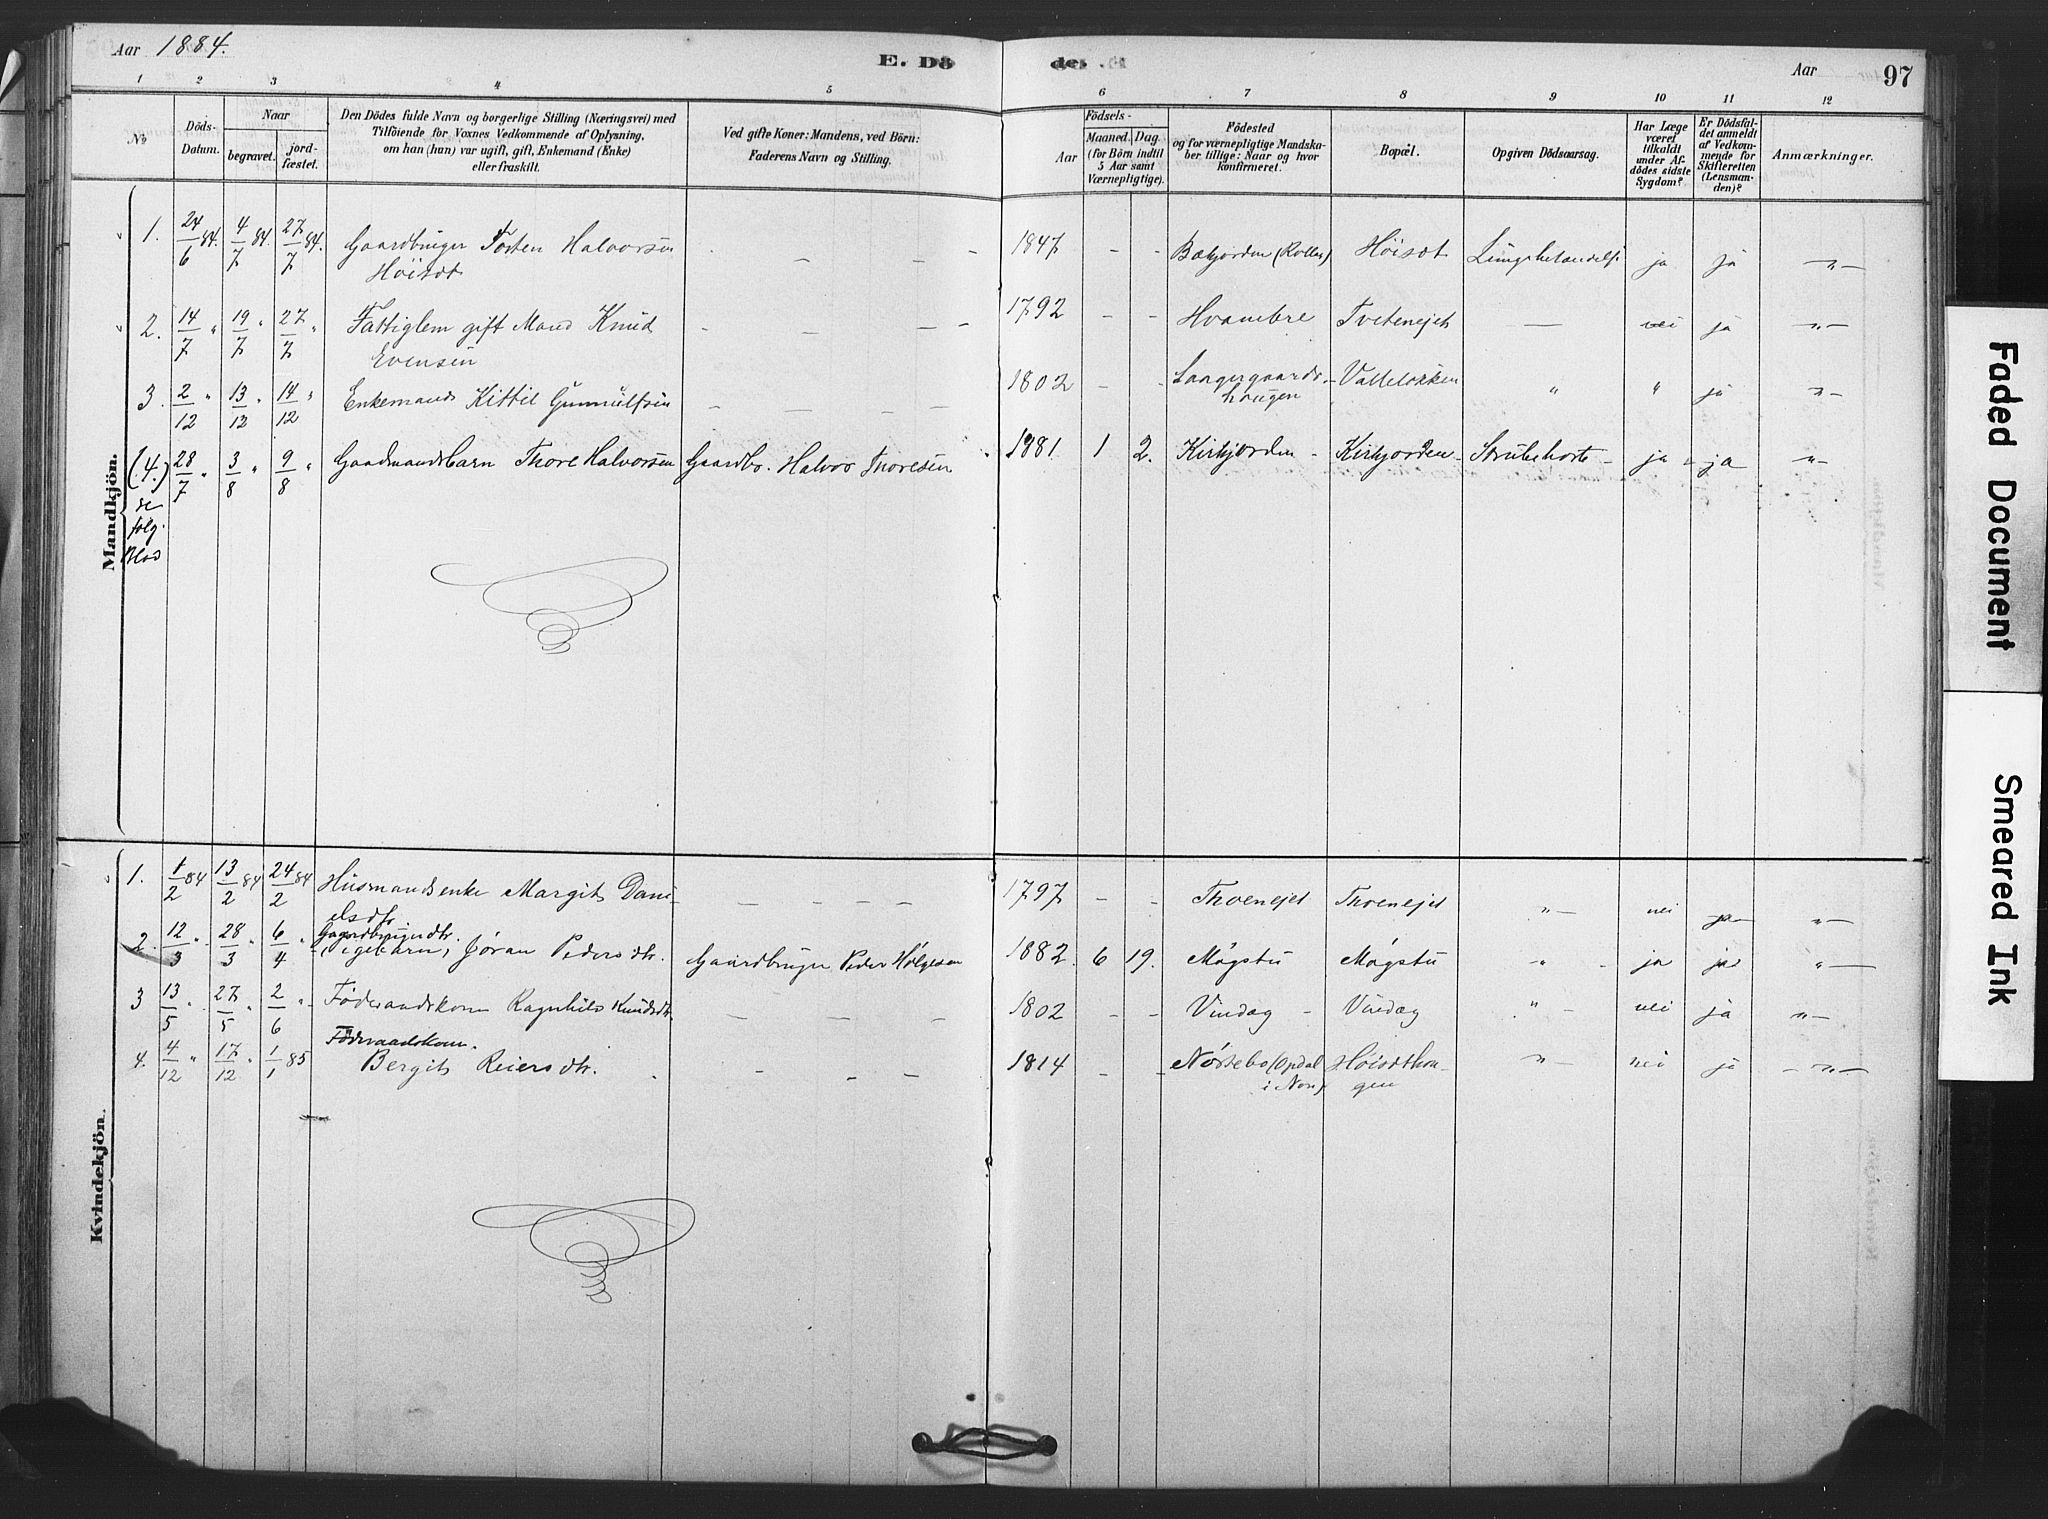 Aar 1884.
E. Dö
de.
Aar
97
1 2 3 4 5 6 7 8 9 10 11 12
No
Döds-
Datum.
Naar
begravet.
jord-
fæstet.
Den Dödes fulde Navn og borgerlige Stilling (Næringsvei) med
Tilföiende for Voxnes Vedkommende af Oplysning,
om han (hun) var ugift, gift, Enkemand (Enke)
eller fraskilt.
Ved gifte Koner: Mandens, ved Börn:
Faderens Navn og Stilling.
Födsels-
Aar
Maaned. Dag.
(for Börn indtil
5 Aar samt
Værnepligtige).
Födested
og for værnepligtige Mandska-
ber tillige: Naar og hvor
konfirmeret.
Bopæl.
Opgiven Dödsaarsag.
Har Læge
været
tilkaldt
under Af-
dödes sidste
Sygdom?
Er Dödsfal-
det anmeldt
af Vedkom-
mende for
Skifteretten
(Lensman-
den)?
Anmærkninger.
Mandkjön.
1. 24/6 84. 4/7 84. 27/7 84. Gaardbruger Tosten Halvorsen - - - 1847 - - (Rollag) Höisdt ja ja -"-
Höisdt
2. 14/7 " 19/7 " 27/7 " Fattiglem gift Mand Knud - - - - 1792 - - Hvambre Tvetenejet - nei ja -"-
Evensen
3. 2/12 " 13/12 " 14/12 " Enkemand Kittil Gunnulfsen - - - - 1802 - - Langergaards- Valleløkken " " ja "-
haugen
(4.) 28/7 " 3/8 " 9/8 " Gaadmandsbarn Thore Halvorsen Gaardbr. Halvor Thoresen 1881. 1 2. Kirkjorden - Kirkjorden - Strubehoste - ja ja "-
se
følg.
Blad
Kvindekjön.
1. 1/2 84 13/2 84 24/2 84 Husmandsenke Margit Dani- - - - - 1797 - - Thoenejet Thoenejet "- nei ja "-
elsdtr
Gaardbrugerdtr.
2. 12/3 " 28/3 " 6/4 " (Pigebarn) Jøran Pedersdtr. Gaardbruger Peder Helgesen 1882. 6 19. Mogstu Mogstu " - ja ja "-
3 13/5 " 27/5 " 2/6 " Föderaadskone Ragnhild Knudsdtr. - - - - 1802 - - Vindæg - Vindæg " - nei ja "-
Föderaadskone.
4. 4/12 " 17/12 " 1/1 85 Bergit Reiersdtr. - - - - 1814 - - Nørstebø (Opdal Höisdthau- "- nei ja -"-
i Num) gen
Faded Document
Smeared Ink